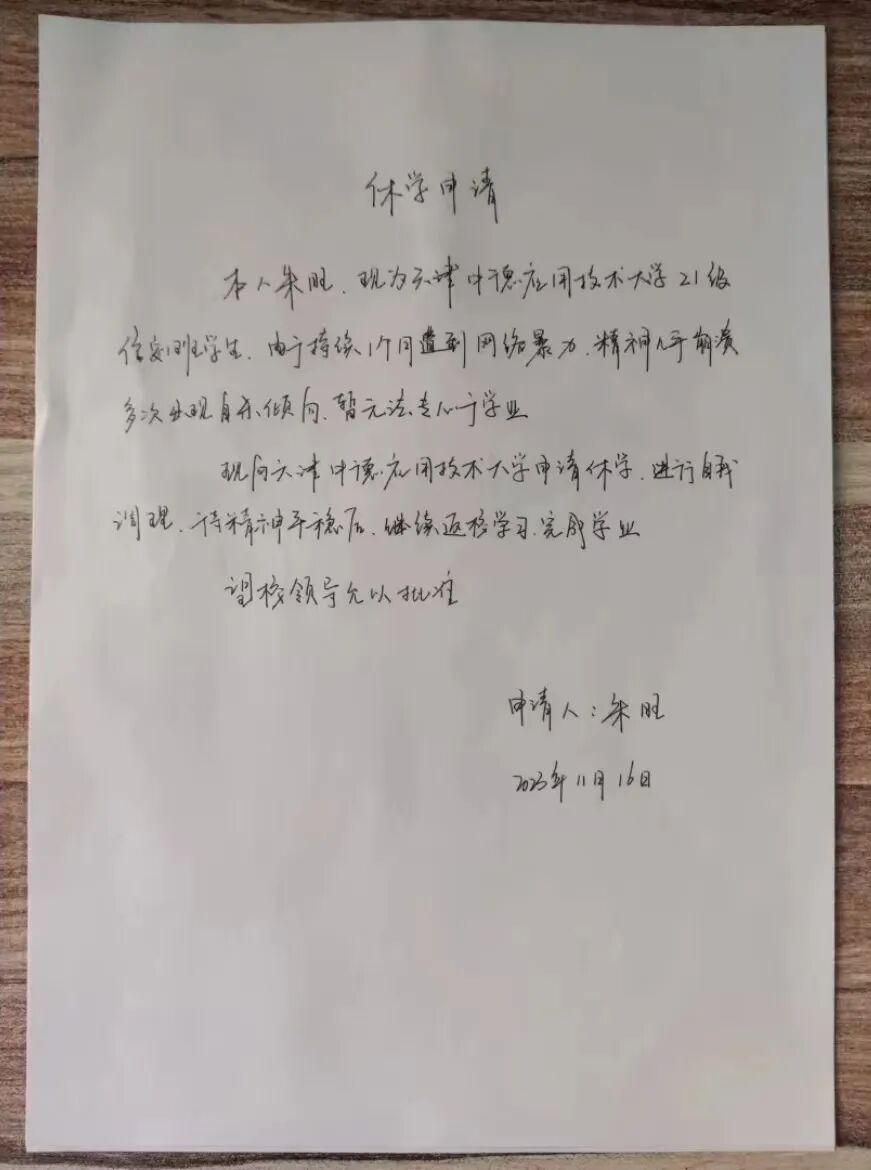 休学申请
本人朱旺、现为天津中德应用技术大学21级
信安1班学生、由于持续1个月遭到网络暴力、精神几乎崩溃
多次出现自杀倾向、暂无法专心于学业
现向天津中德应用技术大学申请休学、进行自我
调理、待精神平稳后、继续返校学习、完成学业
望校领导允以批准
申请人：朱旺
2023年11月16日